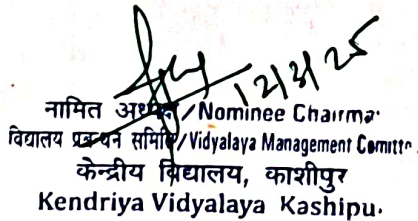 12/3/25
नामित अध्यक्ष/Nominee Chairma
विद्यालय प्रबन्धन समिति/Vidyalaya Management Comitte
केन्द्रीय विद्यालय, काशीपुर
Kendriya Vidyalaya Kashipu